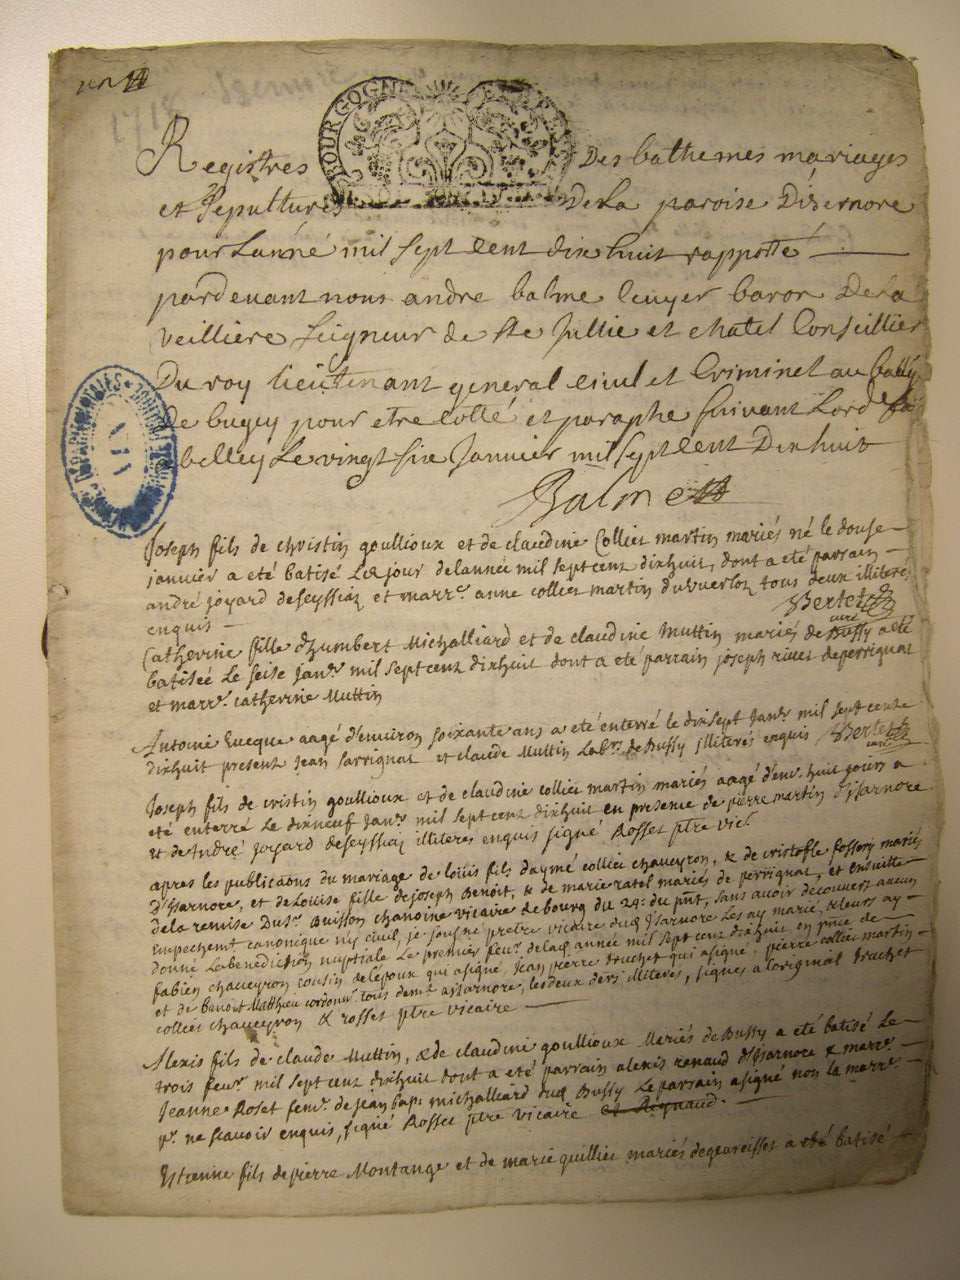 1718 Izernore
BOURGOGNE
Registres Des bathemes mariages
et sepultures De la paroise Disernore
pour Lanné mil sept cent dix huit rapportté
pardevant nous andre balme Ecuyer baron De la
veilliere seigneur de Ste Jullie et chatel Conseillier
Du roy lieutenant general civil et Criminel au bally
de bugey pour etre Collé et paraphe suivant Lord
a belley Le vingt six Janvier mil sept cent Dix huit
Balme
Joseph fils de christin goullioux et de claudine Colliec martin mariés né le douse
janvier a eté batisé Led jour de lannée mil sept cent dixhuit, dont a été parrain
andré joyard de seyssiaz et marr.e anne colliec martin tous deux illiteres
enquis
Bertet
curé
Catherine fille d'humbert Michalliard et de claudine Muttin mariés de Bussy a eté
batisée Le seise Janv.r mil sept cent dixhuit dont a eté parrain joseph de perrignat
et marr.e catherine Muttin
Antoine aagé d'environ soixante ans a eté enterré le dixsept Janv.r mil sept cent
dixhuit present Jean Sarrignat et claude Muttin Lab.rs de Bussy illiterés enquis Bertet
curé
Joseph fils de cristin goullioux et de claudine colliec martin mariés aagé d'env. huit jours a
eté enterré Le dixneuf Janv.r mil sept cent dixhuit en presence de pierre martin d'Isarnore
et de André joyard de seyssiaz illiteres enquis signé Rosset ptre vic.
apres les publicaons du mariage de louis fils d'aymé colliec chaveyron, & de cristofle fossory mariés
D'Isarnore, et de Louise fille de joseph Benoit, & de marie ratel mariés de perrignat, et ensuitte
de la remise Du Sr. Buisson chanoine vicaire de bourg du 29: du pnt, sans avoir decouvers aucun
empechem.t canonique ny civil, je sousné pretre vicaire dud Isarnore Les ay marié, & leurs ay
donné La benediction nuptiale Le premier feuv.r de lad année mil sept cent dixhuit en pnce de
fabien chaveyron cousin de lepoux qui a signé, Jean pierre truchet qui a signé, pierre colliec martin
et de benoit Matthieu cordonr. tous dem.t a Isarnore, les deux ders illiterés, signes a Loriginal truchet
colliec chaveyron & rosset ptre vicaire
Alexis fils de claude Muttin, & de claudine goullioux Meriés de Bussy a eté batisé Le
trois feuv.r mil sept cent dixhuit dont a eté parrain alexis renaud d'Isarnore & marr.e
Jeanne Roset fem.e de jean bap. michalliard dud Bussy Le parrain a signé non la marr.e
pr. ne scavoir enquis, signé Rosset ptre vicaire et Reynaud.
Estienne fils de pierre Montange et de marie quilliec mariés de a eté batisé